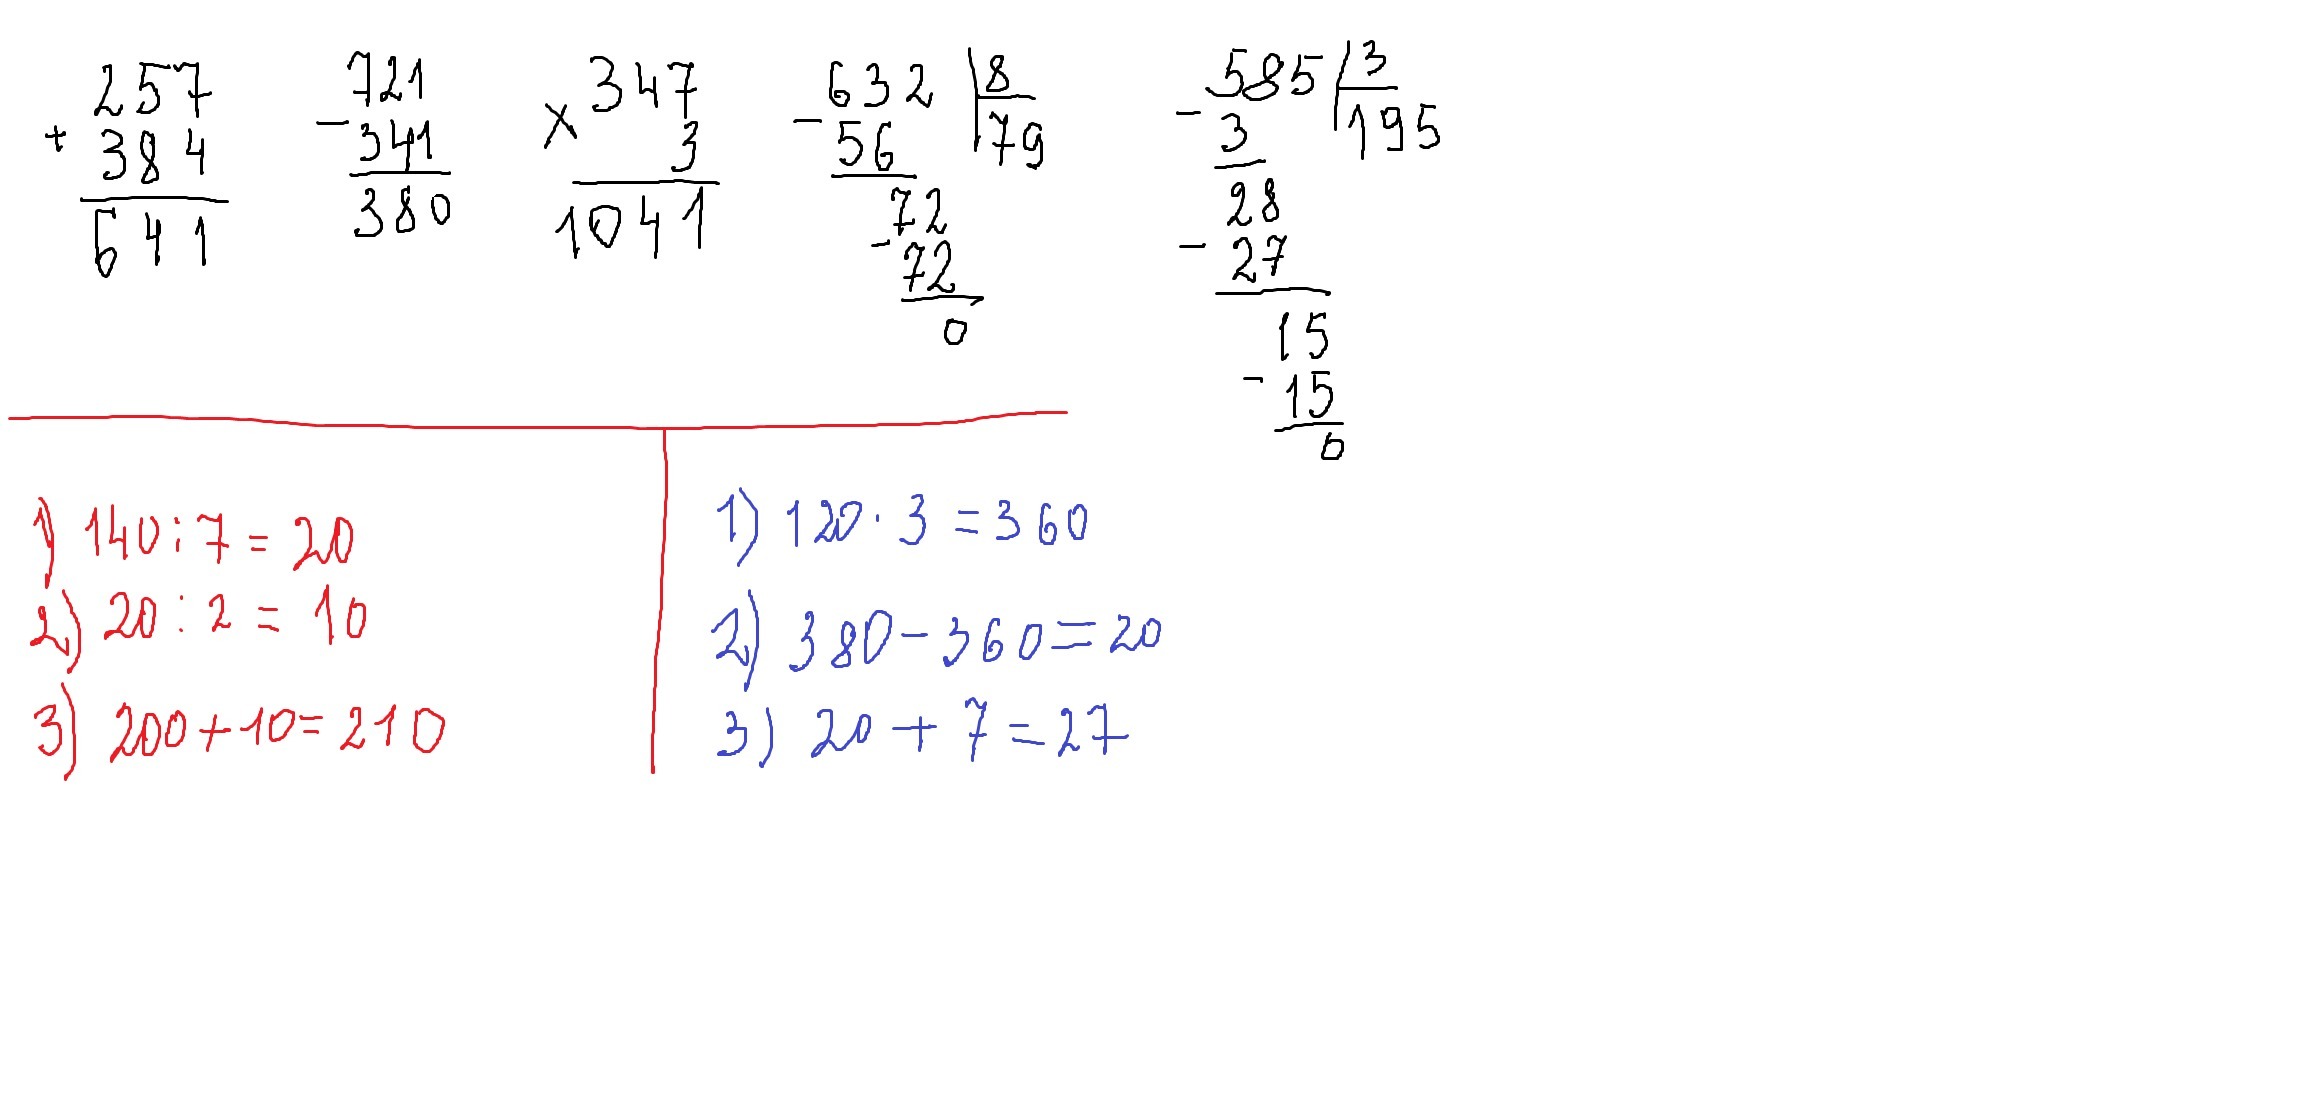 257
+ 384
641
721
- 341
380
× 347
3
1041
632 | 8
- 56 | 79
72
- 72
0
585 | 3
- 3 | 195
28
- 27
15
- 15
0
1) 140 : 7 = 20
2) 20 : 2 = 10
3) 200 + 10 = 210
1) 120 · 3 = 360
2) 380 - 360 = 20
3) 20 + 7 = 27